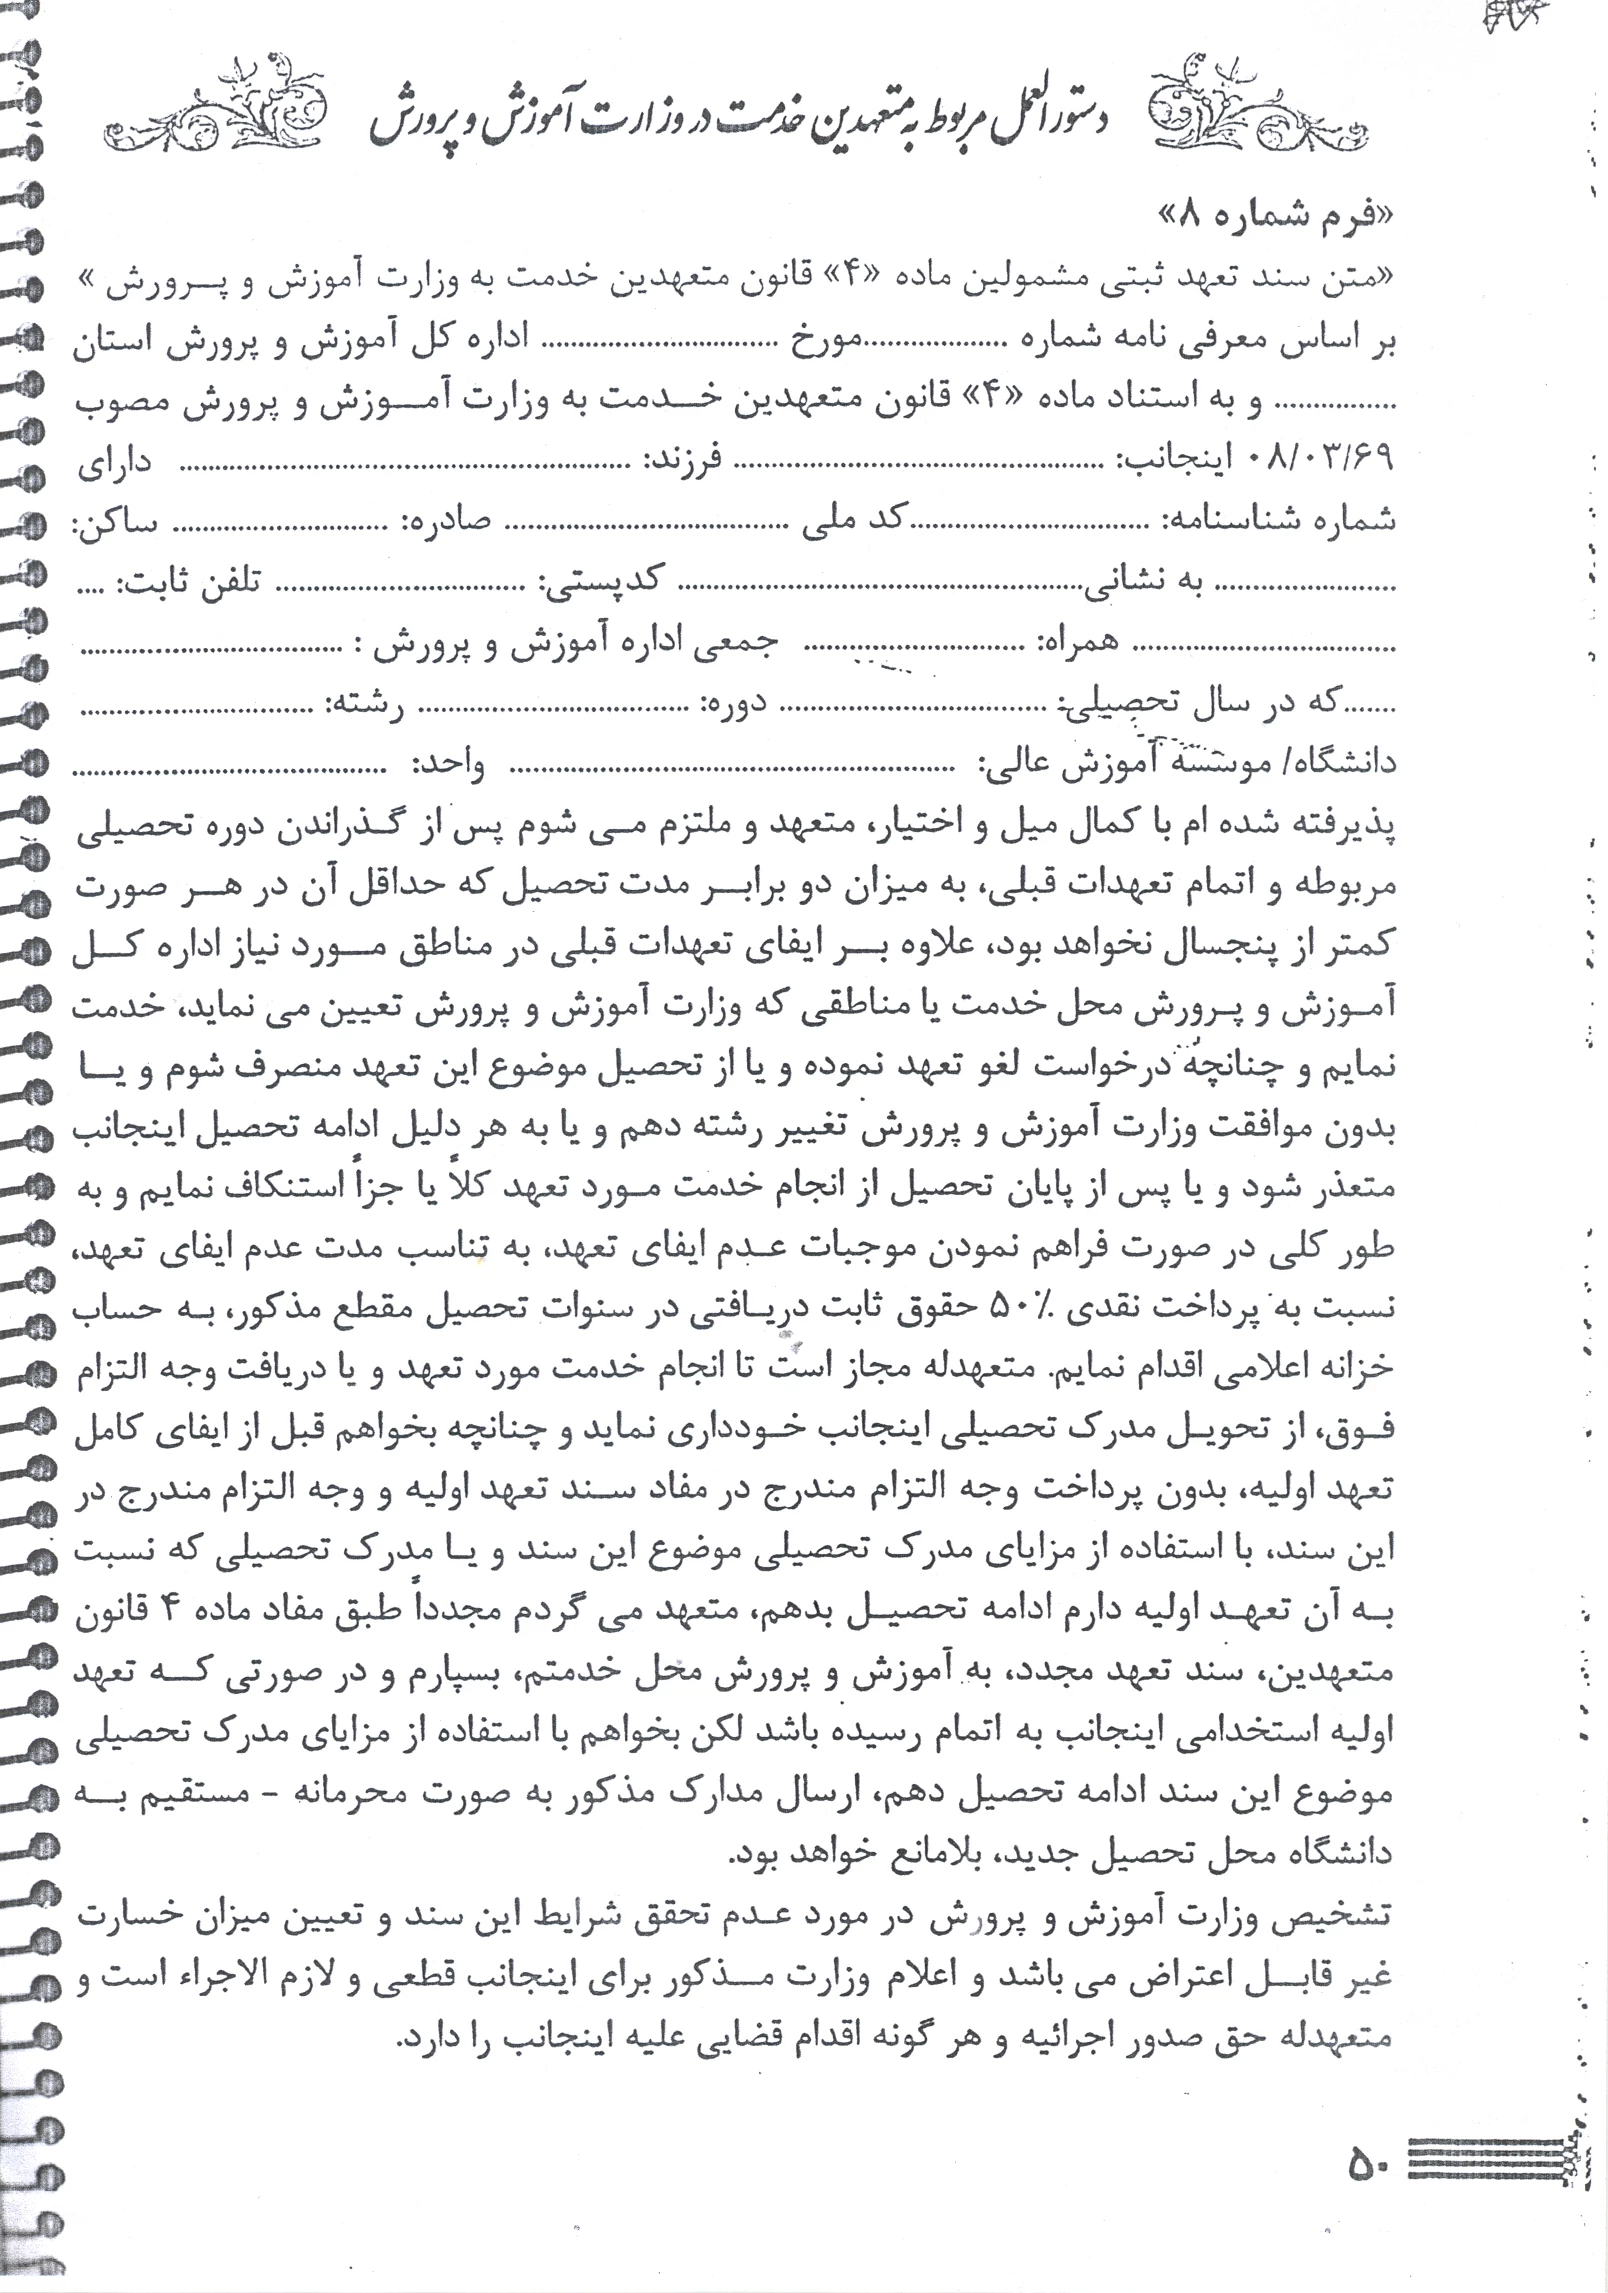 دستورالعمل مربوط به متعهدین خدمت در وزارت آموزش و پرورش
«فرم شماره ۸»
«متن سند تعهد ثبتی مشمولین ماده «۴» قانون متعهدین خدمت به وزارت آموزش و پرورش »
بر اساس معرفی نامه شماره ....................مورخ ................................ اداره کل آموزش و پرورش استان
................ و به استناد ماده «۴» قانون متعهدین خدمت به وزارت آموزش و پرورش مصوب
۰۸/۰۳/۶۹ اینجانب: .................................................. فرزند: .............................................................. دارای
شماره شناسنامه: ................................کد ملی ...................................... صادره: ............................. ساکن:
......................... به نشانی....................................................... کدپستی: .................................. تلفن ثابت: ....
.................................... همراه: .............................. جمعی اداره آموزش و پرورش : ....................................
.......که در سال تحصیلی: .................................... دوره: ..................................... رشته: ................................
دانشگاه/ موسسه آموزش عالی: ............................................................. واحد: ...........................................
پذیرفته شده ام با کمال میل و اختیار، متعهد و ملتزم می شوم پس از گذراندن دوره تحصیلی
مربوطه و اتمام تعهدات قبلی، به میزان دو برابر مدت تحصیل که حداقل آن در هر صورت
کمتر از پنجسال نخواهد بود، علاوه بر ایفای تعهدات قبلی در مناطق مورد نیاز اداره کل
آموزش و پرورش محل خدمت یا مناطقی که وزارت آموزش و پرورش تعیین می نماید، خدمت
نمایم و چنانچه درخواست لغو تعهد نموده و یا از تحصیل موضوع این تعهد منصرف شوم و یا
بدون موافقت وزارت آموزش و پرورش تغییر رشته دهم و یا به هر دلیل ادامه تحصیل اینجانب
متعذر شود و یا پس از پایان تحصیل از انجام خدمت مورد تعهد کلاً یا جزاً استنکاف نمایم و به
طور کلی در صورت فراهم نمودن موجبات عدم ایفای تعهد، به تناسب مدت عدم ایفای تعهد،
نسبت به پرداخت نقدی ۵۰٪ حقوق ثابت دریافتی در سنوات تحصیل مقطع مذکور، به حساب
خزانه اعلامی اقدام نمایم. متعهدله مجاز است تا انجام خدمت مورد تعهد و یا دریافت وجه التزام
فوق، از تحویل مدرک تحصیلی اینجانب خودداری نماید و چنانچه بخواهم قبل از ایفای کامل
تعهد اولیه، بدون پرداخت وجه التزام مندرج در مفاد سند تعهد اولیه و وجه التزام مندرج در
این سند، با استفاده از مزایای مدرک تحصیلی موضوع این سند و یا مدرک تحصیلی که نسبت
به آن تعهد اولیه دارم ادامه تحصیل بدهم، متعهد می گردم مجدداً طبق مفاد ماده ۴ قانون
متعهدین، سند تعهد مجدد، به آموزش و پرورش محل خدمتم، بسپارم و در صورتی که تعهد
اولیه استخدامی اینجانب به اتمام رسیده باشد لکن بخواهم با استفاده از مزایای مدرک تحصیلی
موضوع این سند ادامه تحصیل دهم، ارسال مدارک مذکور به صورت محرمانه - مستقیم به
دانشگاه محل تحصیل جدید، بلامانع خواهد بود.
تشخیص وزارت آموزش و پرورش در مورد عدم تحقق شرایط این سند و تعیین میزان خسارت
غیر قابل اعتراض می باشد و اعلام وزارت مذکور برای اینجانب قطعی و لازم الاجراء است و
متعهدله حق صدور اجرائیه و هر گونه اقدام قضایی علیه اینجانب را دارد.
۵۰